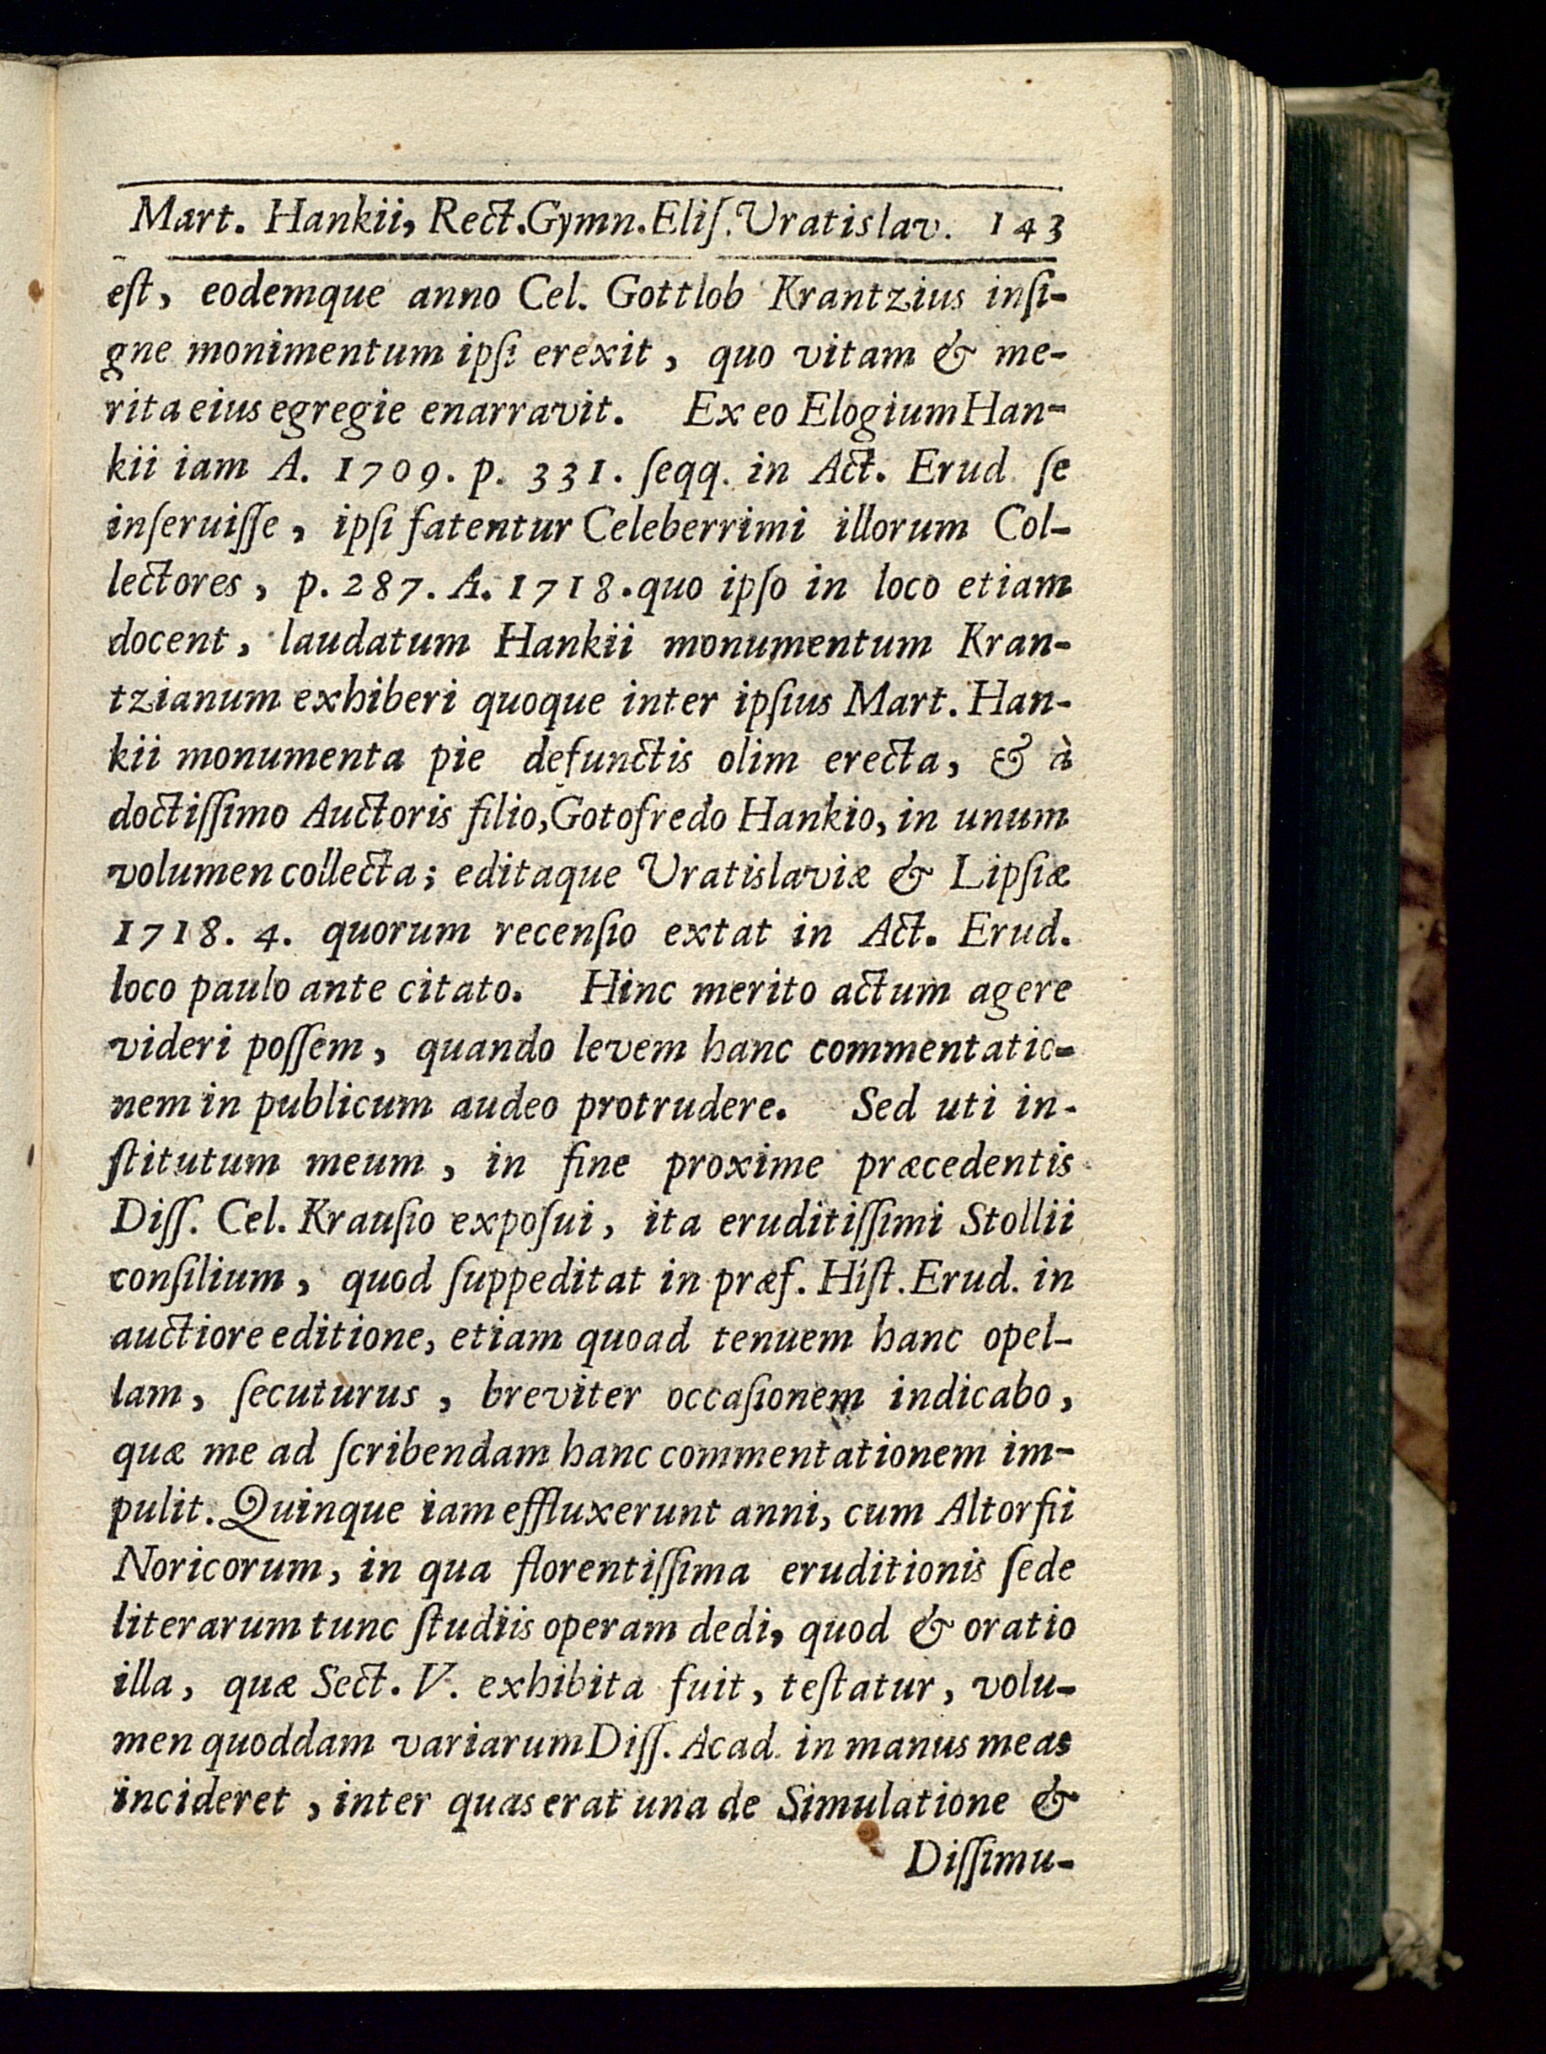 Mart. Hankii, Rect. Gymn. Eliſ. Uratislav. 143
eſt, eodemque anno Cel. Gottlob Krantzius inſi-
gne monimentum ipſi erexit, quo vitam & me-
rita eius egregie enarravit. Ex eo Elogium Han-
kii iam A. 1709. p. 331. ſeqq. in Act. Erud. ſe
inſeruiſſe, ipſi fatentur Celeberrimi illorum Col-
lectores, p. 287. A. 1718. quo ipſo in loco etiam
docent, laudatum Hankii monumentum Kran-
tzianum exhiberi quoque inter ipſius Mart. Han-
kii monumenta pie defunctis olim erecta, & à
doctiſſimo Auctoris filio, Gotofredo Hankio, in unum
volumen collecta; editaque Uratislaviæ & Lipſiæ
1718. 4. quorum recenſio extat in Act. Erud.
loco paulo ante citato. Hinc merito actum agere
videri poſſem, quando levem hanc commentatio-
nem in publicum audeo protrudere. Sed uti in-
ſtitutum meum, in fine proxime præcedentis
Diſſ. Cel. Krauſio expoſui, ita eruditiſſimi Stollii
conſilium, quod ſuppeditat in præf. Hiſt. Erud. in
auctiore editione, etiam quoad tenuem hanc opel-
lam, ſecuturus, breviter occaſionem indicabo,
quæ me ad ſcribendam hanc commentationem im-
pulit. Quinque iam effluxerunt anni, cum Altorfii
Noricorum, in qua florentiſſima eruditionis ſede
literarum tunc ſtudiis operam dedi, quod & oratio
illa, quæ Sect. V. exhibita fuit, teſtatur, volu-
men quoddam variarum Diſſ. Acad. in manus meas
incideret, inter quas erat una de Simulatione &
Diſſimu-